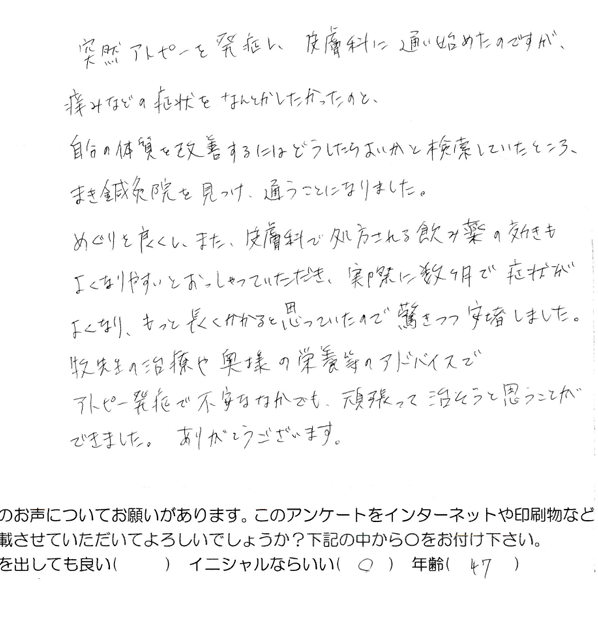 突然アトピーを発症し、皮膚科に通い始めたのですが、
痒みなどの症状をなんとかしたかったのと、
自分の体質を改善するにはどうしたらよいかと検索していたところ、
まき鍼灸院を見つけ、通うことになりました。
めぐりを良くし、また、皮膚科で処方される飲み薬の効きも
よくなりやすいとおっしゃっていただき、実際に数ヶ月で症状が
よくなり、もっと長くかかると思っていたので驚きつつ安堵しました。
牧先生の治療や奥様の栄養等のアドバイスで
アトピー発症で不安ななかでも、頑張って治そうと思うことが
できました。ありがとうございます。
のお声についてお願いがあります。このアンケートをインターネットや印刷物など
載させていただいてよろしいでしょうか？下記の中から○をお付け下さい。
を出しても良い(　　) イニシャルならいい( ○ ) 年齢( 47 )